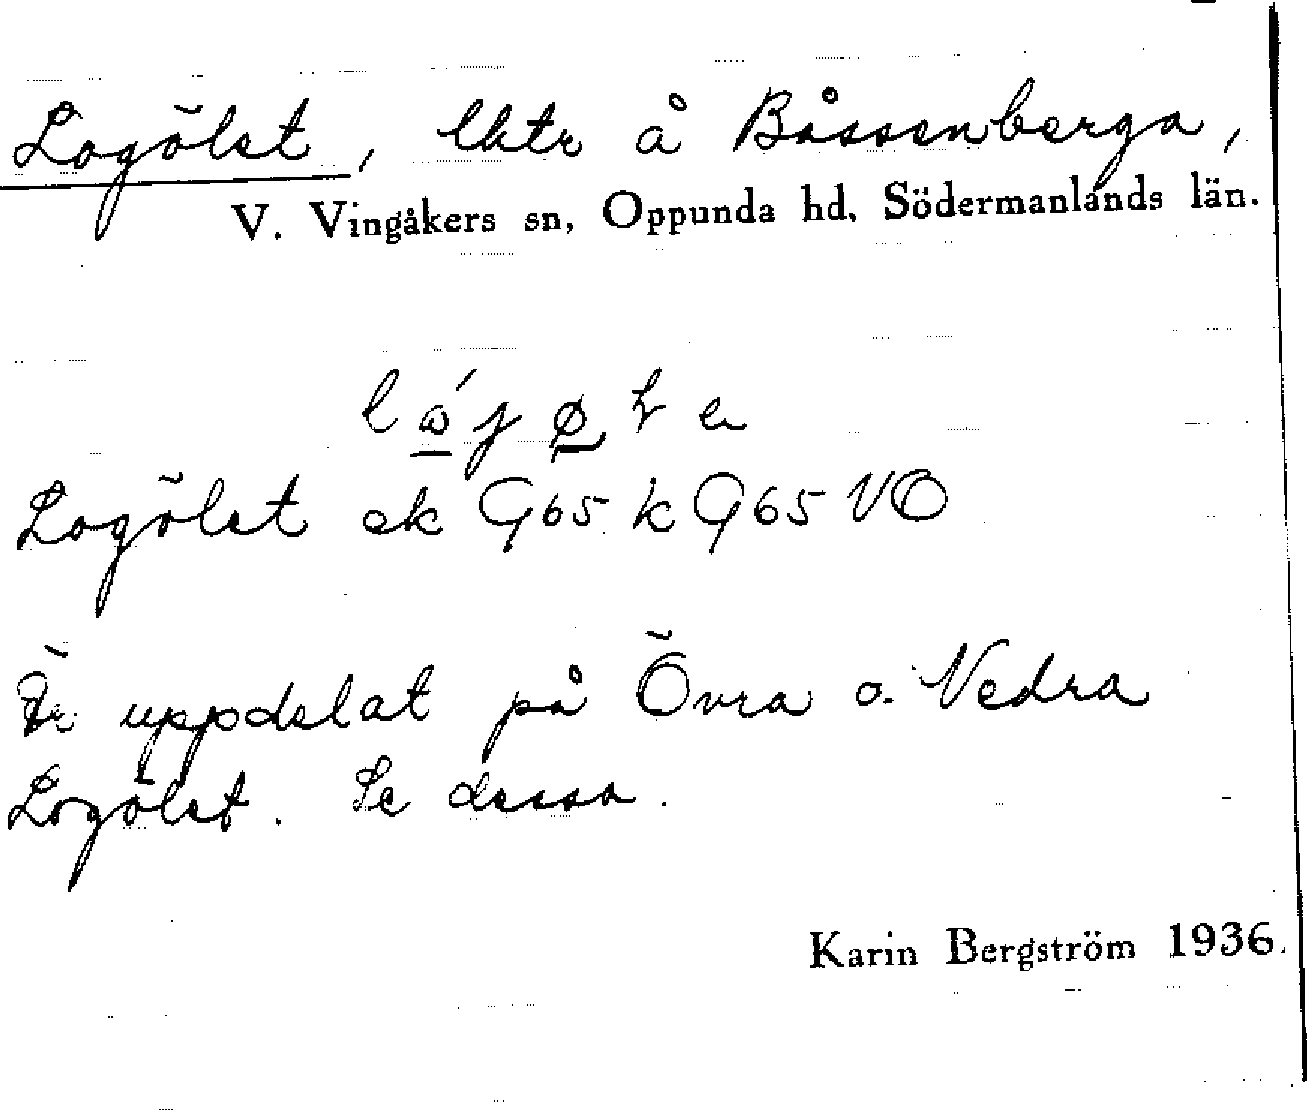 Logölet, lhtr å Båssenberga,
V. Vingåkers sn, Oppunda hd, Södermanlands län.
Logölet ek G65 k G65 VO
Är uppdelat på Övra o. Nedra
Logölet. Se dessa.
Karin Bergström 1936.